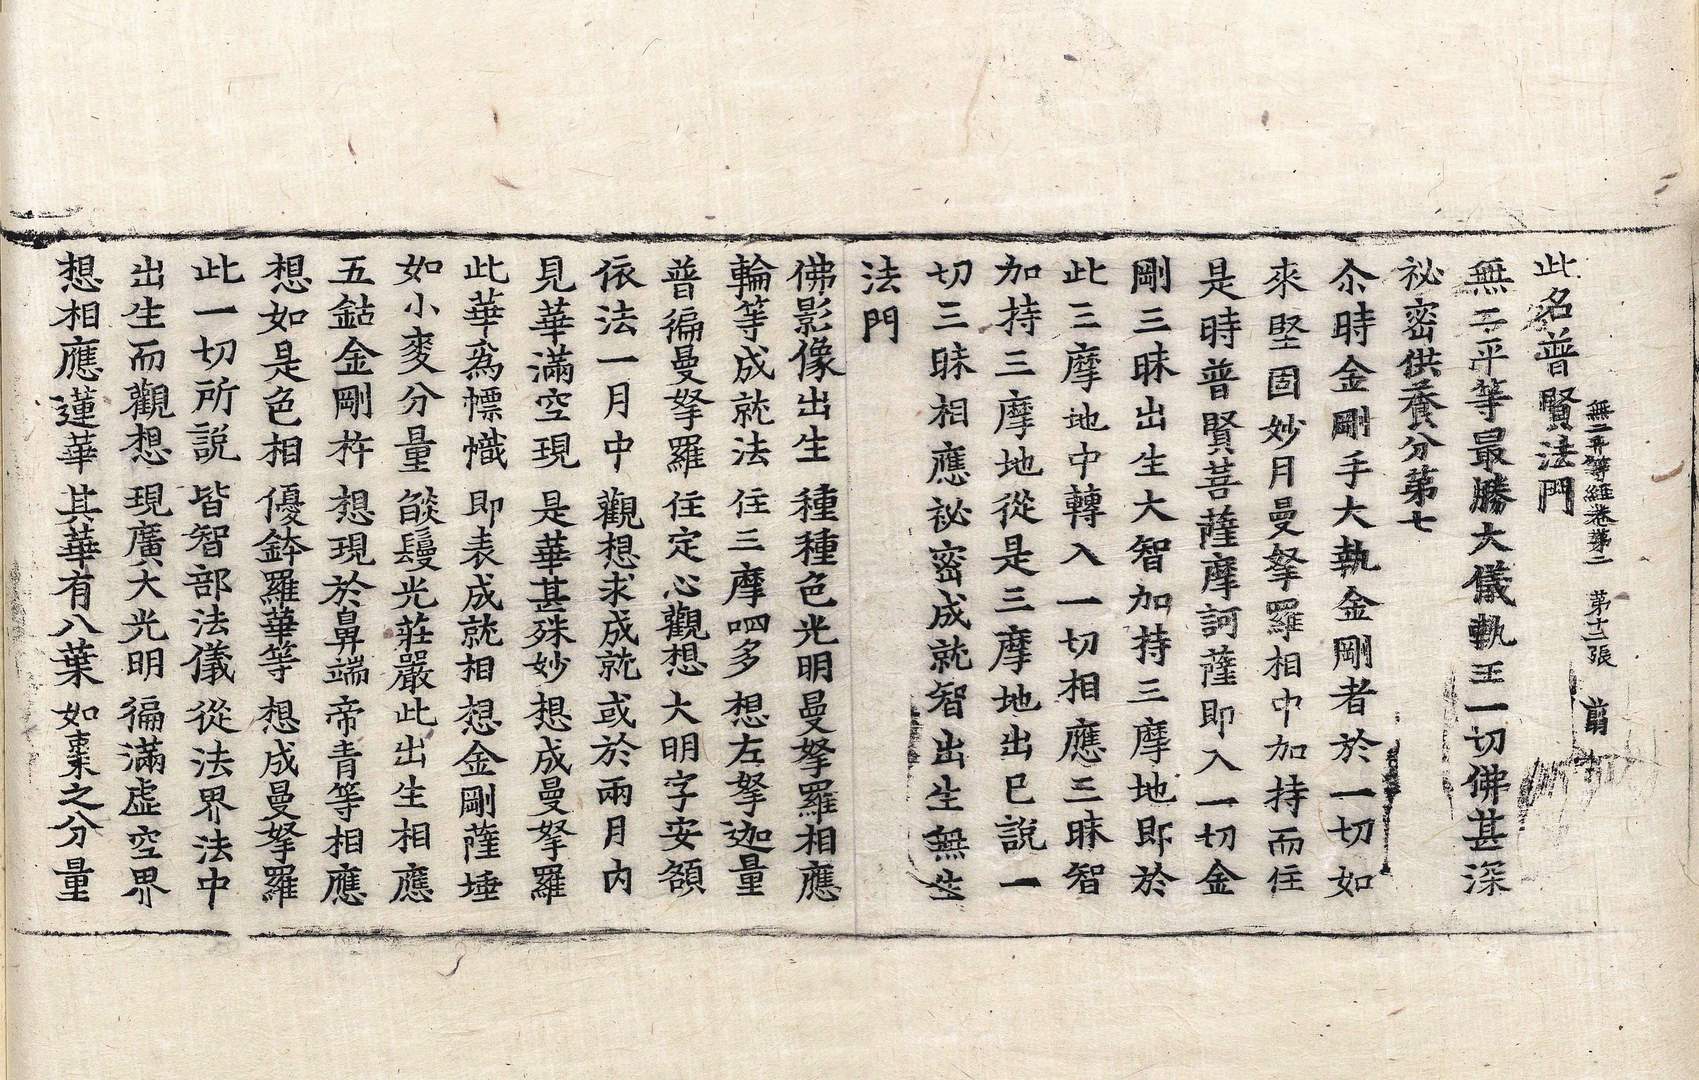 無二平等經卷第二 第十二張 翦
此名普賢法門
無二平等最勝大儀軌王一切佛甚深
祕密供養分第七
尒時金剛手大執金剛者於一切如
來堅固妙月曼拏羅相中加持而住
是時普賢菩薩摩訶薩即入一切金
剛三昧出生大智加持三摩地即於
此三摩地中轉入一切相應三昧智
加持三摩地從是三摩地出已說一
切三昧相應祕密成就智出生無生
法門
佛影像出生 種種色光明曼拏羅相應
輪等成就法 住三摩呬多 想左拏迦量
普徧曼拏羅 住定心觀想 大明字安額
依法一月中 觀想求成就 或於兩月內
見華滿空現 是華甚殊妙 想成曼拏羅
此華為幖幟 即表成就相 想金剛薩埵
如小麥分量 𦦨鬘光莊嚴 此出生相應
五鈷金剛杵 想現於鼻端 帝青等相應
想如是色相 優鉢羅華等 想成曼拏羅
此一切所說 皆智部法儀 從法界法中
出生而觀想 現廣大光明 徧滿虛空界
想相應蓮華 其華有八葉 如棗之分量